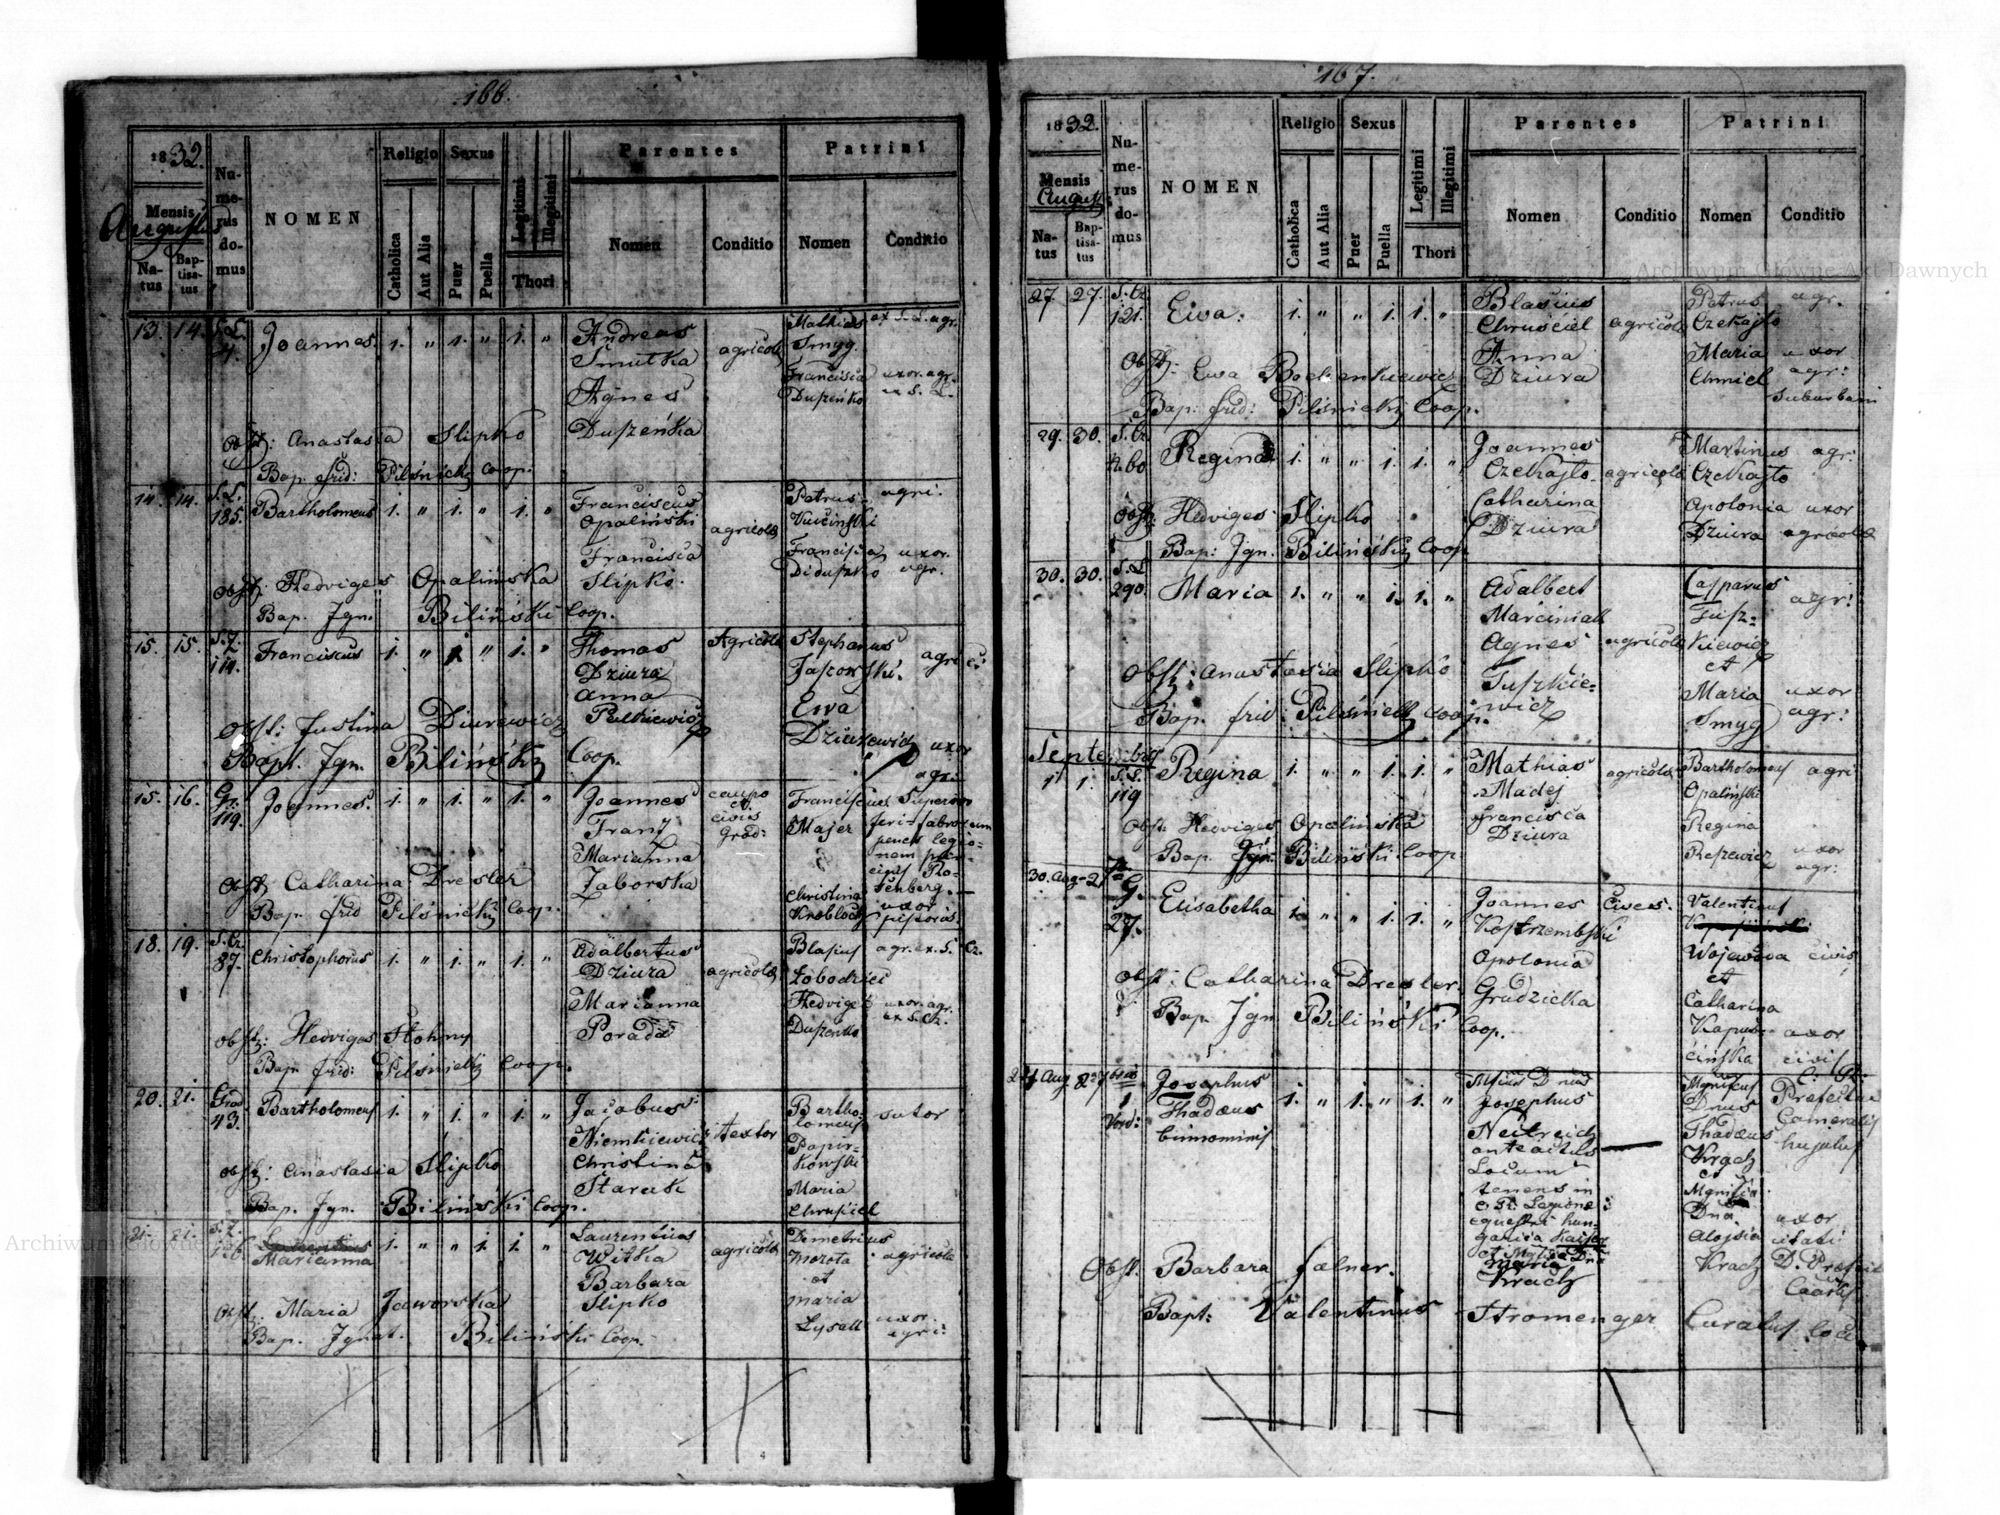 166.
1832.
Mensis
Augustus
Natus
Baptisatus
Numerus domus
NOMEN
Religio
Catholica
Aut Alia
Sexus
Puer
Puella
Legitimi
Illegitimi
Thori
Parentes
Nomen
Conditio
Patrini
Nomen
Conditio
13. 14. S.L. 4. Joannes. 1. " 1. " 1. "
Andreas
Smutka
Agnes
Duszeńka
agricola
Mathias
Smyg.
Francisca
Duszeńko
ex S. L. agr.
uxor agr.
ex S. L.
Obst: Anastasia Slipko
Bap. frid: Pilśnicky Coop.
14. 14. S.L. 185. Bartholomeus 1. " 1. " 1. "
Franciscus
Opaliński
Francisca
Slipko.
agricola
Petrus
Francisca
Diduszko
agri.
uxor.
agr.
Obst: Hedviges Opalińska
Bap. Ign. Biliński Coop.
15. 15. Franciscus 1. " 1. " 1. "
Thomas
Dziura
Anna
Agricola
Stephanus
Ewa
Obst: Justina Diurewicz
Bapt. Ign. Bilińsky Coop.
15. 16. Gr. 119. Joannes. 1. " 1. " 1. "
Joannes
Franz
Marianna
Zaborska
caupo
et
civis
Grod:
Franciscus
Majer
Christina
Knobloch
uxor
Obst: Catharina Drexler
Bap. frid Pilśnicky Coop.
18. 19. S.Cz. 87. Christophorus 1. " 1. " 1. "
Adalbertus
Dziura
Marianna
Porada
agricola
Blasius
Łobodzici
Hedviges
Duszenko
agr. ex. S. Cz.
uxor. agr.
ex S. Cz.
Obst: Hedviges Stohny
Bap. frid: Pilśnicky Coop.
20. 21. Grod 43. Bartholomeus 1. " 1. " 1. "
Jacobus
Niemkiewicz
Christina
Staruk
textor
Bartholomeus
Papirkowski
Maria
Chrusciel
sutor
Obst: Anastasia Slipko
Bap. Ign. Biliński Coop.
21. 21. Marianna 1. " " 1. 1. "
Laurentius
Witka
Barbara
Slipko
agricola
Demetrius
Morota
et
Maria
Lysak
agricola
uxor.
agri:
Obst: Maria Jaworska
Bap. Ignat. Biliński Coop.
167.
1832.
Mensis
August
Natus
Baptisatus
Numerus domus
NOMEN
Religio
Catholica
Aut Alia
Sexus
Puer
Puella
Legitimi
Illegitimi
Thori
Parentes
Nomen
Conditio
Patrini
Nomen
Conditio
27. 27. S.Cz. 121. Ewa. 1. " " 1. 1. "
Blasius
Chrusciel
Anna
Dziura
agricola
Petrus
Czekajło
Maria
Chmiel
agr.
uxor
agr:
Suburbani
Obst: Ewa Bochenkiewicz
Bap. frid: Pilśnicky Coop.
29. 30. S.Cz. Regina 1. " " 1. 1. "
Joannes
Czekajło
Catharina
Dziura
agricola
Martinus
Czekajło
Apolonia
Dziura
agr.
uxor
agricola
Obst: Hedviges Slipko
Bap: Ign. Bilińsky Coop
30. 30. S.L. 290. Maria 1. " " 1. 1. "
Adalbert
Marciniak
Agnes
Tuszkiewicz
agricola
Casparus
Tuszkiewicz
et
Maria
Smyg
agr:
uxor
agr:
Obst: Anastasia Slipko
Bap. frid: Pilśnicky Coop.
September
1. 1. 119 Regina 1. " " 1. 1. "
Mathias
Madej
Francisca
Dziura
agricola
Bartholomeus
Opaliński
Regina
agri
uxor
agr:
Obst. Hedviges Opalińska
Bap. Ign. Biliński Coop
30. Aug. G. 27. Elisabetha 1. " " 1. 1. "
Joannes
Kostrzembski
Apolonia
Grudzicka
Cives.
Valentinus
Wojewoda
et
Catharina
civis
uxor
civis
Obst: Catharina Drexler.
Bap. Ign Biliński Coop.
Josephus
Thadæus
binominis
1. " 1. " 1. "
Josephus
Neitreich
Locum
tenens in
Legione
equestri hungarica Kaiser
Maria
Krach
Dnus
Thadæus
Krach
et
Dna
Aloisia
Krach
Cameralis
hujatis
uxor
citati
Obst. Barbara Falner.
Bapt: Valentinus Stromenger Curatus loci
Archiwum Główne Akt Dawnych